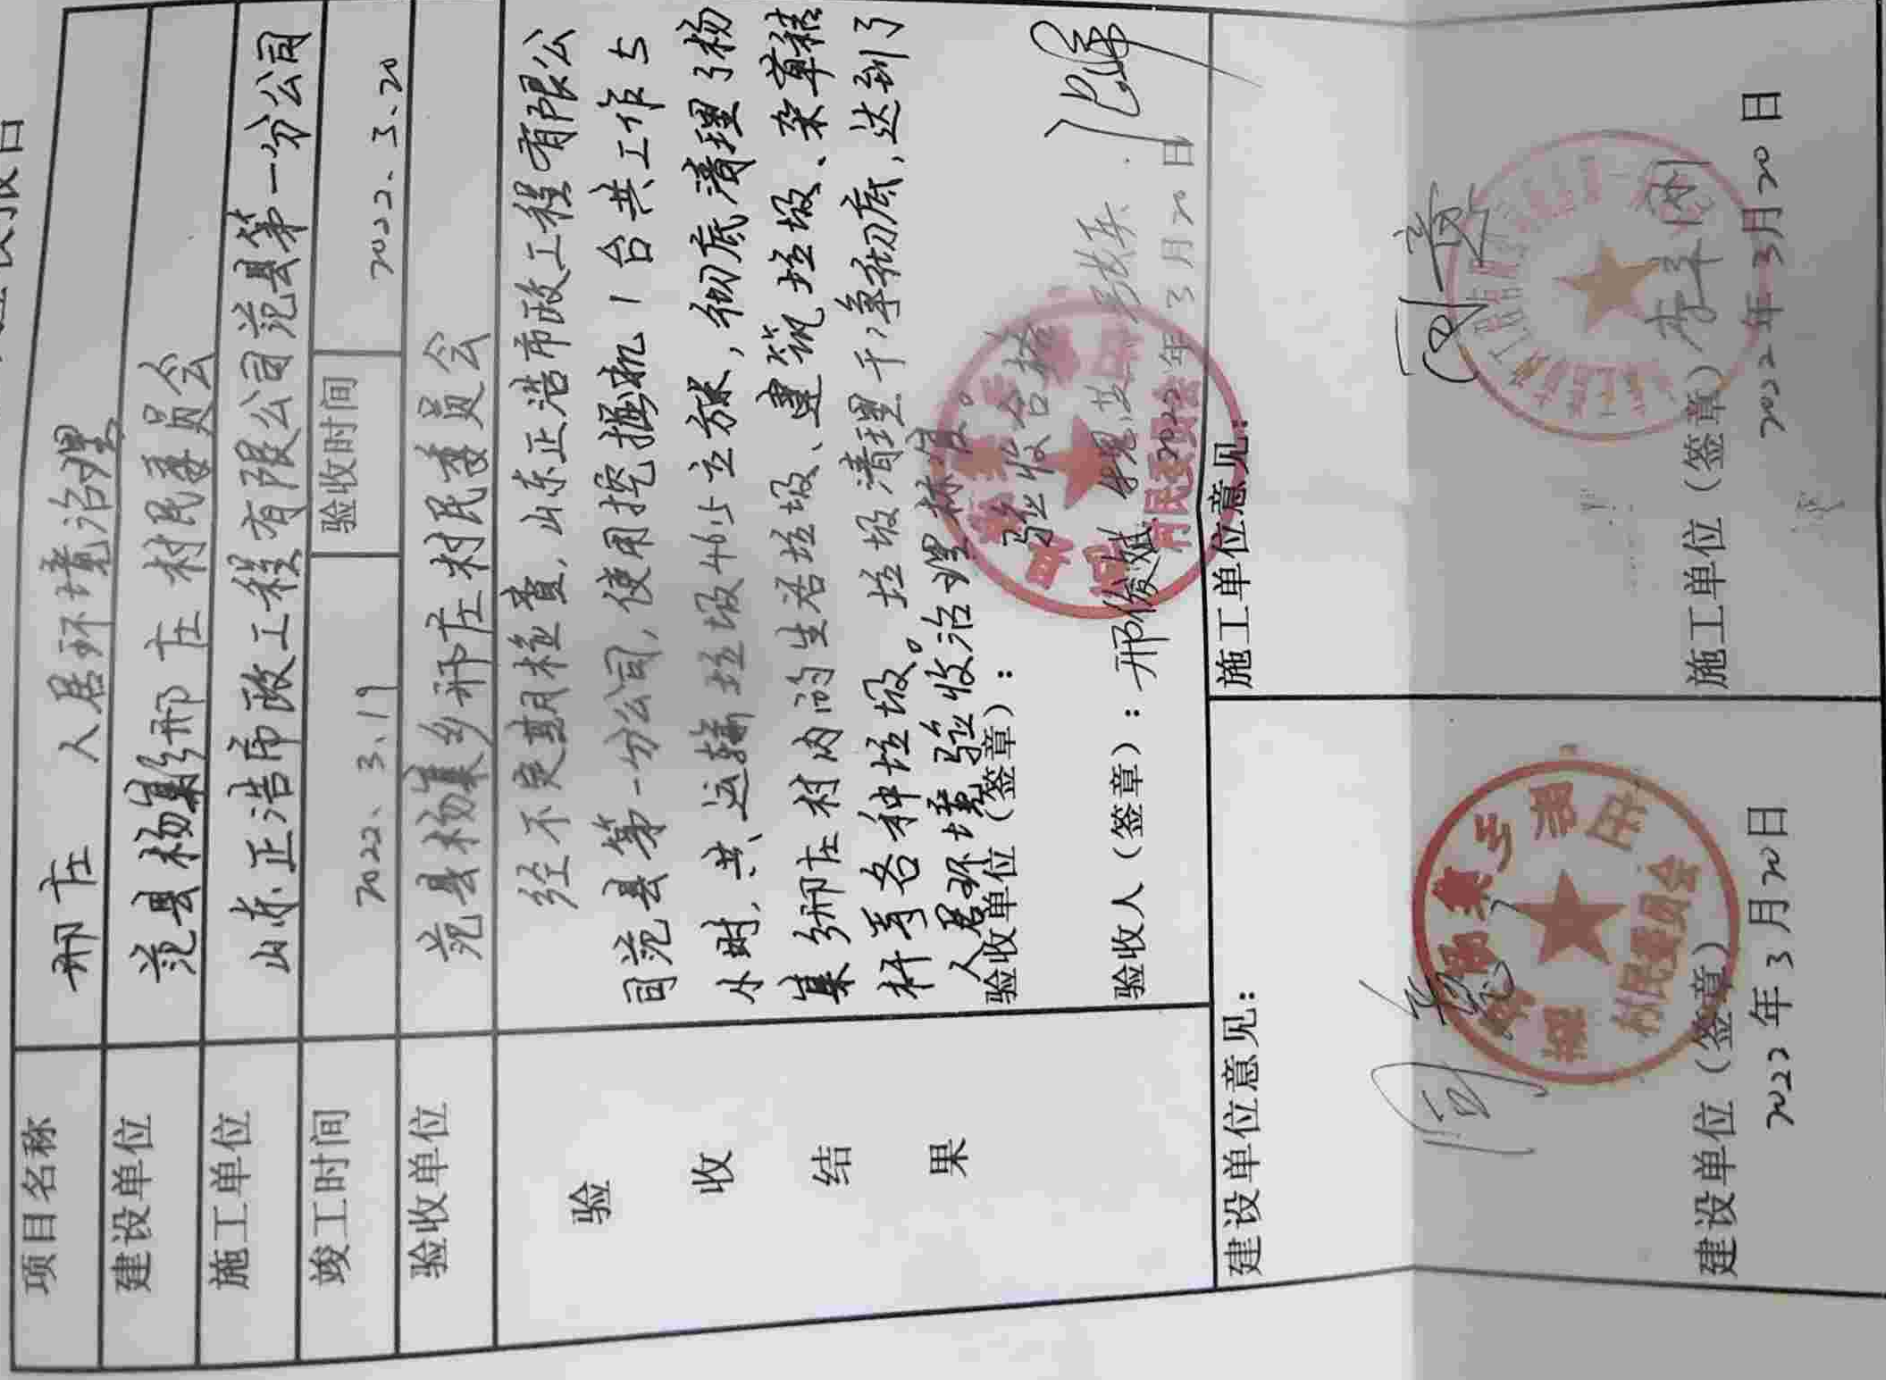 项目名称 邢庄 人居环境治理
建设单位 范县杨集乡邢庄村民委员会
施工单位 山东正浩市政工程有限公司范县第一分公司
竣工时间 2022、3.19 验收时间 2022、3、20
验收单位 范县杨集乡邢庄村民委员会
验收结果
经不定期检查，山东正浩市政工程有限公
司范县第一分公司，使用挖掘机1台共工作5
小时，共运输垃圾465立方米，彻底清理了杨
集乡邢庄村内的生活垃圾、建筑垃圾、杂草秸
杆等各种垃圾。垃圾清理干净彻底，达到了
人居环境验收治理标准。
验收单位（签章）： 验收合格
验收人（签章）：邢俊斌
2022年3月20日
村民委员会
建设单位意见：
同意
集乡邢庄
村民委员会
建设单位（签章）
2022年3月20日
施工单位意见：
同意
施工单位（签章）
2022年3月20日